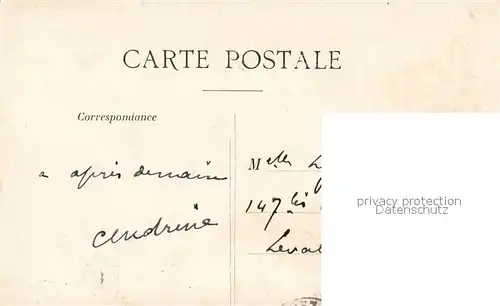 CARTE POSTALE
Correspondance
a après demain
M elle L
147 bis
privacy protection
Datenschutz
Leval